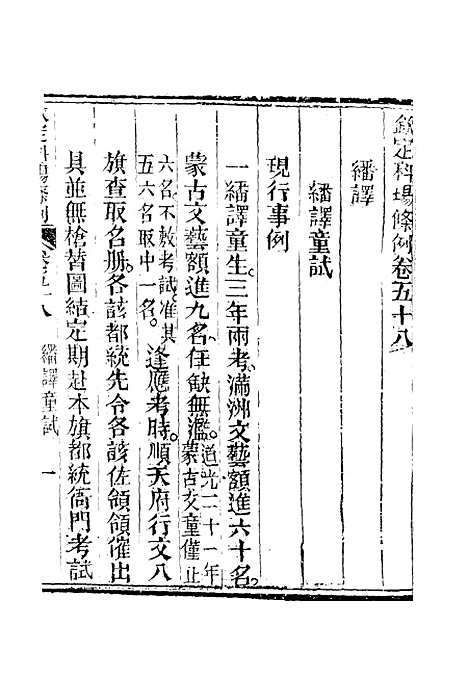 欽定科場條例卷五十八
繙譯
繙譯童試
現行事例
一繙譯童生三年兩考滿洲文藝額進六十名
蒙古文藝額進九名任缺無濫道光二十一年蒙古文童僅止
六名不敷考試准其五六名取中一名逢應考時順天府行文八
旗查取名册各該都統先令各該佐領領催出
具並無槍替圖結定期赴本旗都統衙門考試
欽定科場條例 卷五十八 繙譯童試 一